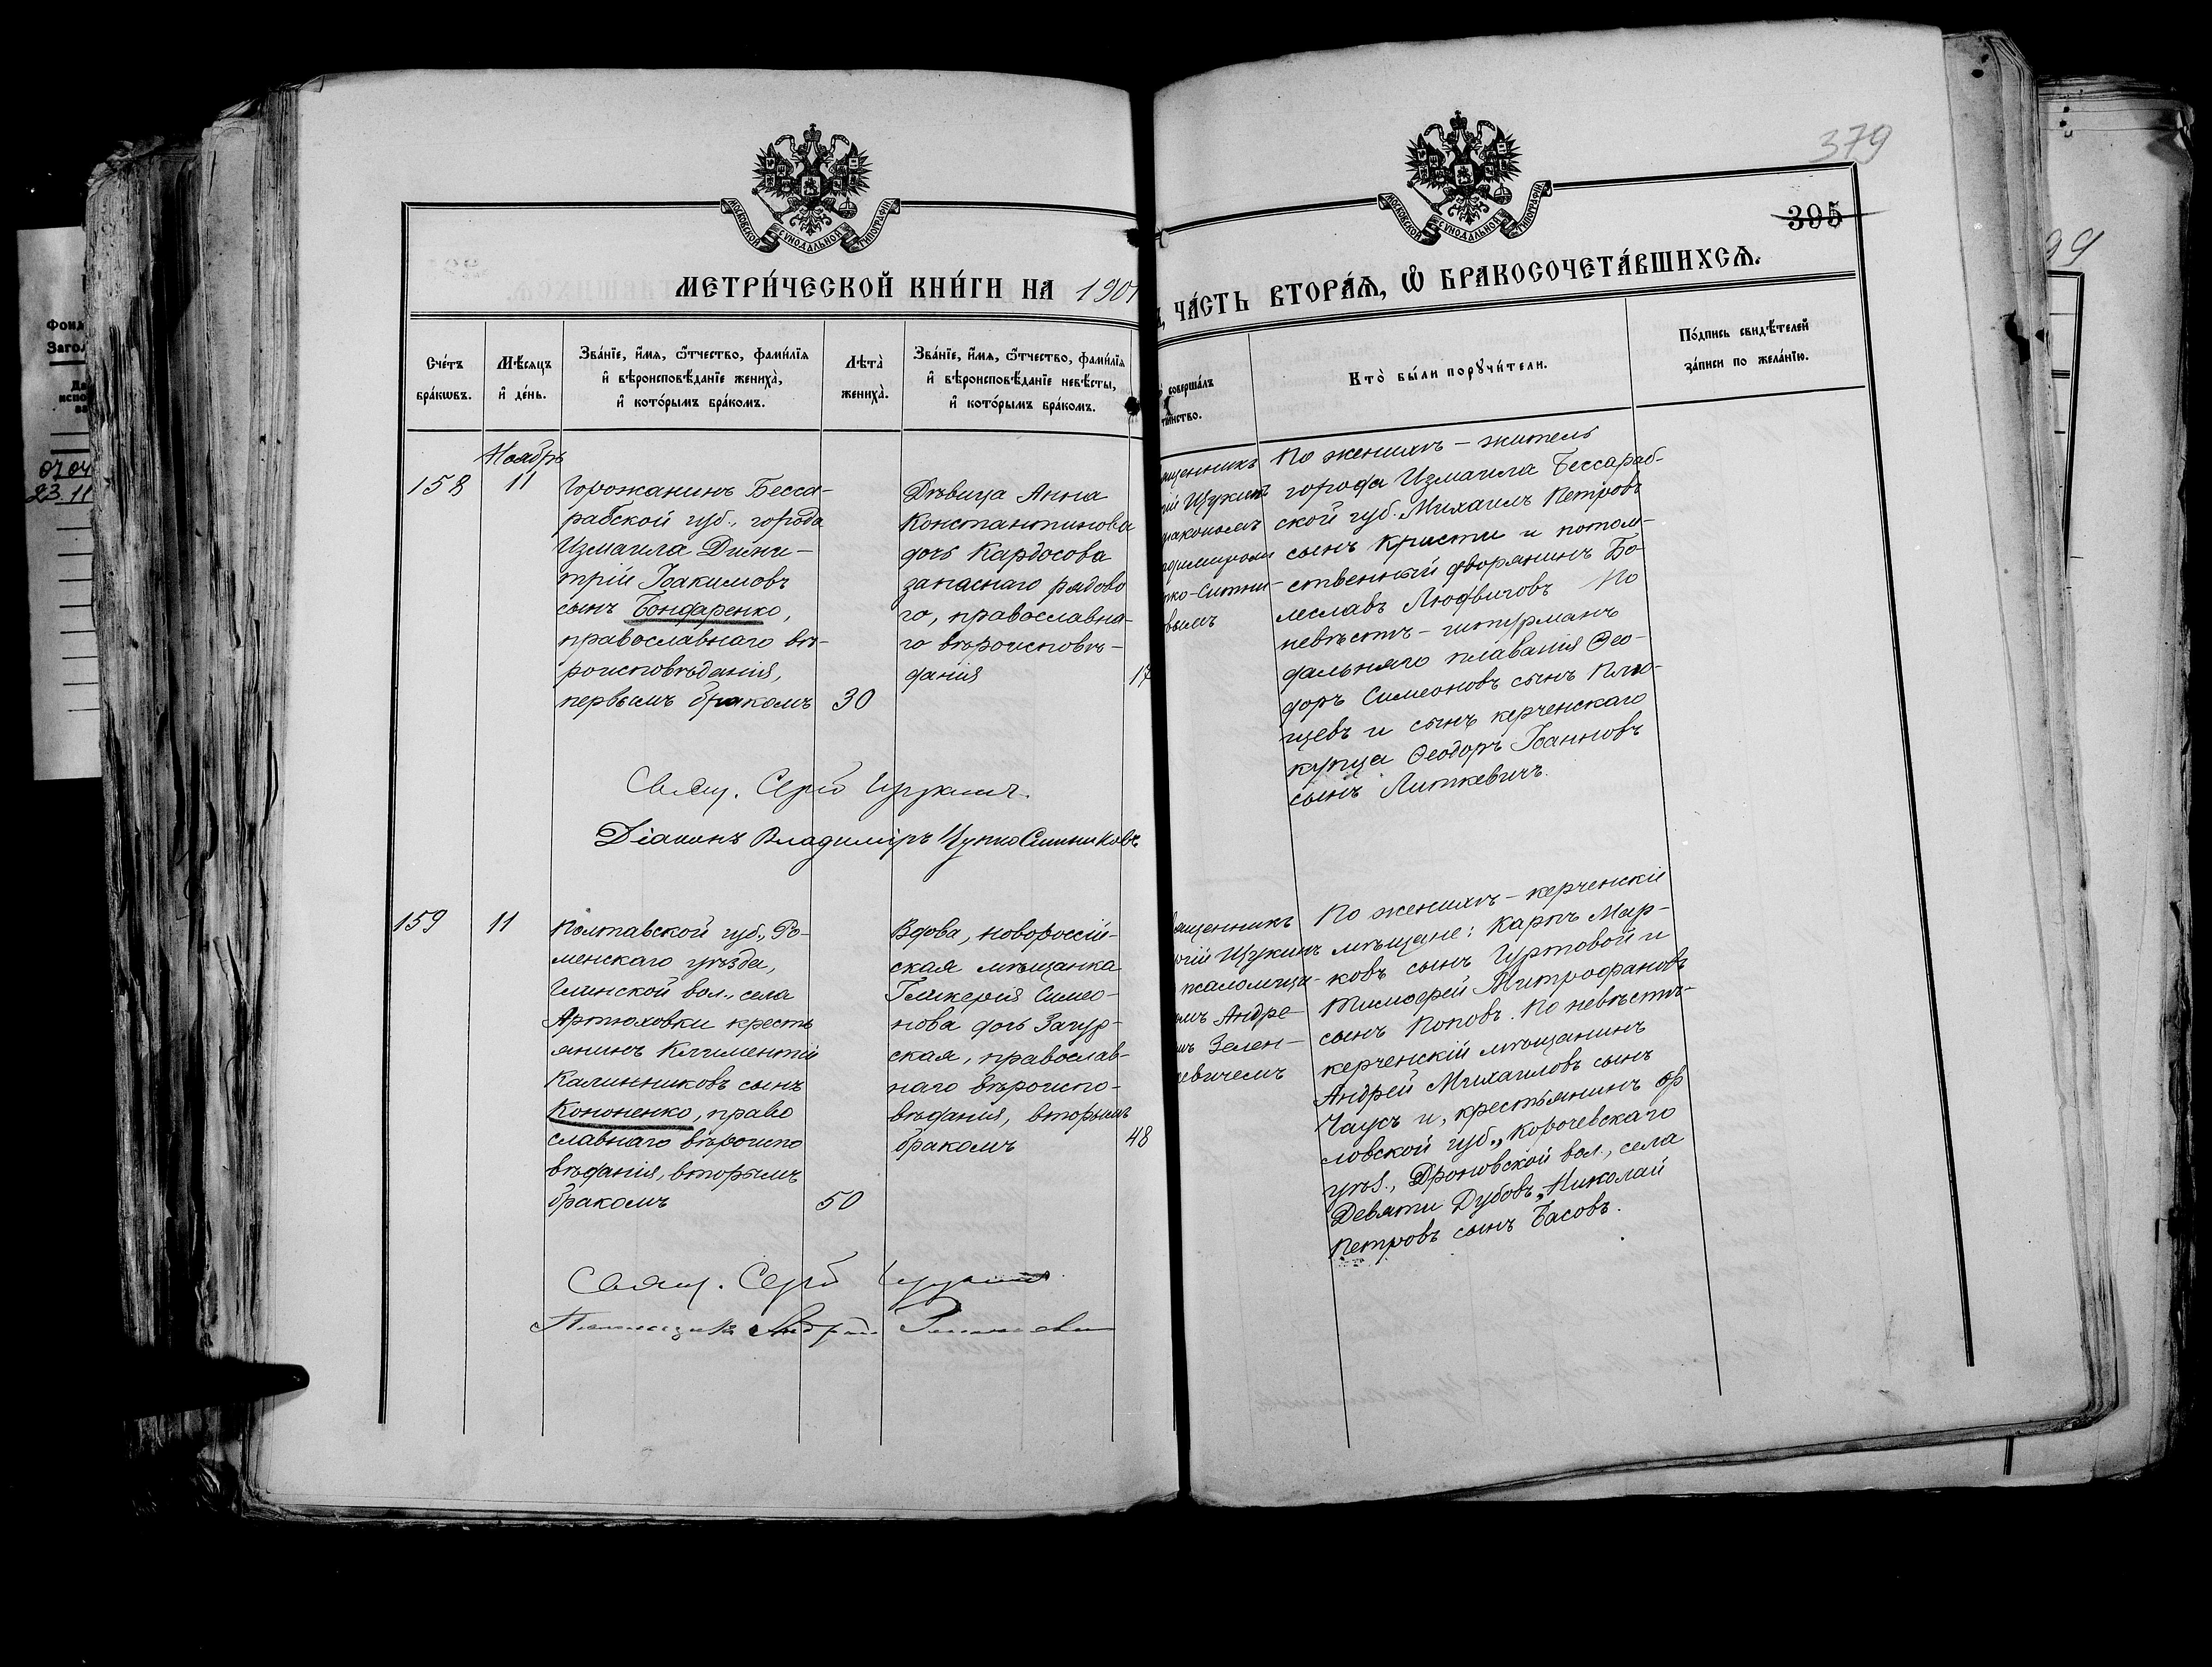 379
395
МОСКОВСКОЙ СѴНОДАЛЬНОЙ ТИПОГРАФІИ
МОСКОВСКОЙ СѴНОДАЛЬНОЙ ТИПОГРАФІИ
МЕТРИ́ЧЕСКОЙ КНИ́ГИ НА 1901
ЧА́СТЬ ВТОРА́Ѧ, Ѿ БРАКОСОЧЕТА́ВШИХСѦ.
Сче́тъ
бра́кωвъ.
Мѣ́сяцъ
и҆ де́нь.
Зва́нїе, и҆́мя, ѻ҆́тчество, фами́лїя
и҆ вѣроисповѣ́данїе жениха̀,
и҆ кото́рымъ бра́комъ.
Лѣта̀
жениха̀.
Зва́нїе, и҆́мя, ѻ҆́тчество, фами́лїя
и҆ вѣроисповѣ́данїе невѣ́сты,
и҆ кото́рымъ бра́комъ.
соверша́лъ
таинство.
Кто̀ бы́ли порꙋчи́тели.
По́дпись свидѣ́телей
за́писи по жела́нїю.
Ноябрь
158
11
Горожанинъ Бесса-
рабской губ., города
Измаила Дими-
трій Іоакимовъ
сынъ Бондаренко,
православнаго вѣ-
роисповѣданія,
первымъ бракомъ
30
Дѣвица Анна
Константинова
дочь Кардосова
запаснаго рядово
го, православна-
го вѣроисповѣ-
данія
17
ященникъ
гій Щукинъ
діакономъ
адиміромъ
пко-Ситни-
вымъ
По женихѣ – житель
города Измаила Бессараб-
ской губ. Михаилъ Петровъ
сынъ Кристи и потом-
ственный дворянинъ Бо-
леславъ Людвиговъ По
невѣстѣ – штурманъ
дальняго плаванія Ѳео-
доръ Симеоновъ сынъ Плю-
щевъ и сынъ керченскаго
купца Ѳеодоръ Іоанновъ
сынъ Литкевичъ.
Свящ. Сергій Щукинъ.
Діаконъ Владиміръ Цупко Ситниковъ
159
11
Полтавской губ., Ро-
менскаго уѣзда,
Глинской вол., села
Артюховки кресть
янинъ Климентій
Калинниковъ сынъ
Кононенко, право
славнаго вѣроиспо
вѣданія, вторымъ
бракомъ
50
Вдова, новороссій-
ская мѣщанка
Гликерія Симео-
нова дочь Загур-
ская, православ-
наго вѣроиспо-
вѣданія, вторымъ
бракомъ
48
ященникъ
ргій Щукинъ
псаломщи-
омъ Андре-
мъ Зелен-
кевичемъ
По женихѣ – керченскіе
мѣщане: Карпъ Мар-
ковъ сынъ Гуртовой и
Тимофей Митрофановъ
сынъ Поповъ. По невѣстѣ-
керченскій мѣщанинъ
Андрей Михаиловъ сынъ
Чаусъ и, крестьянинъ Ор
ловской губ., Корочевскаго
уѣз., Дроновской вол., села
Девяти Дубовъ, Николай
Петровъ сынъ Басовъ.
Свящ. Сергій Щукинъ
Псаломщикъ Андрей
Фонд
Загол
07 04
23.11
99